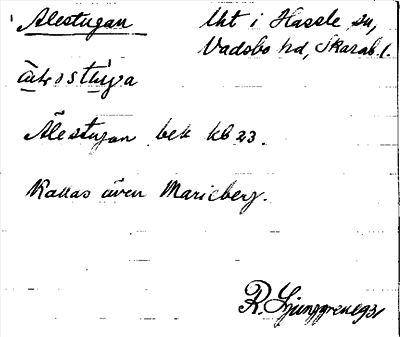 Ålestugan lht i Hassle sn,
Vadsbo hd, Skarab. l.
Ålestugan bek kb 23.
Kallas även Marieberg.
R. Ljunggren 1931